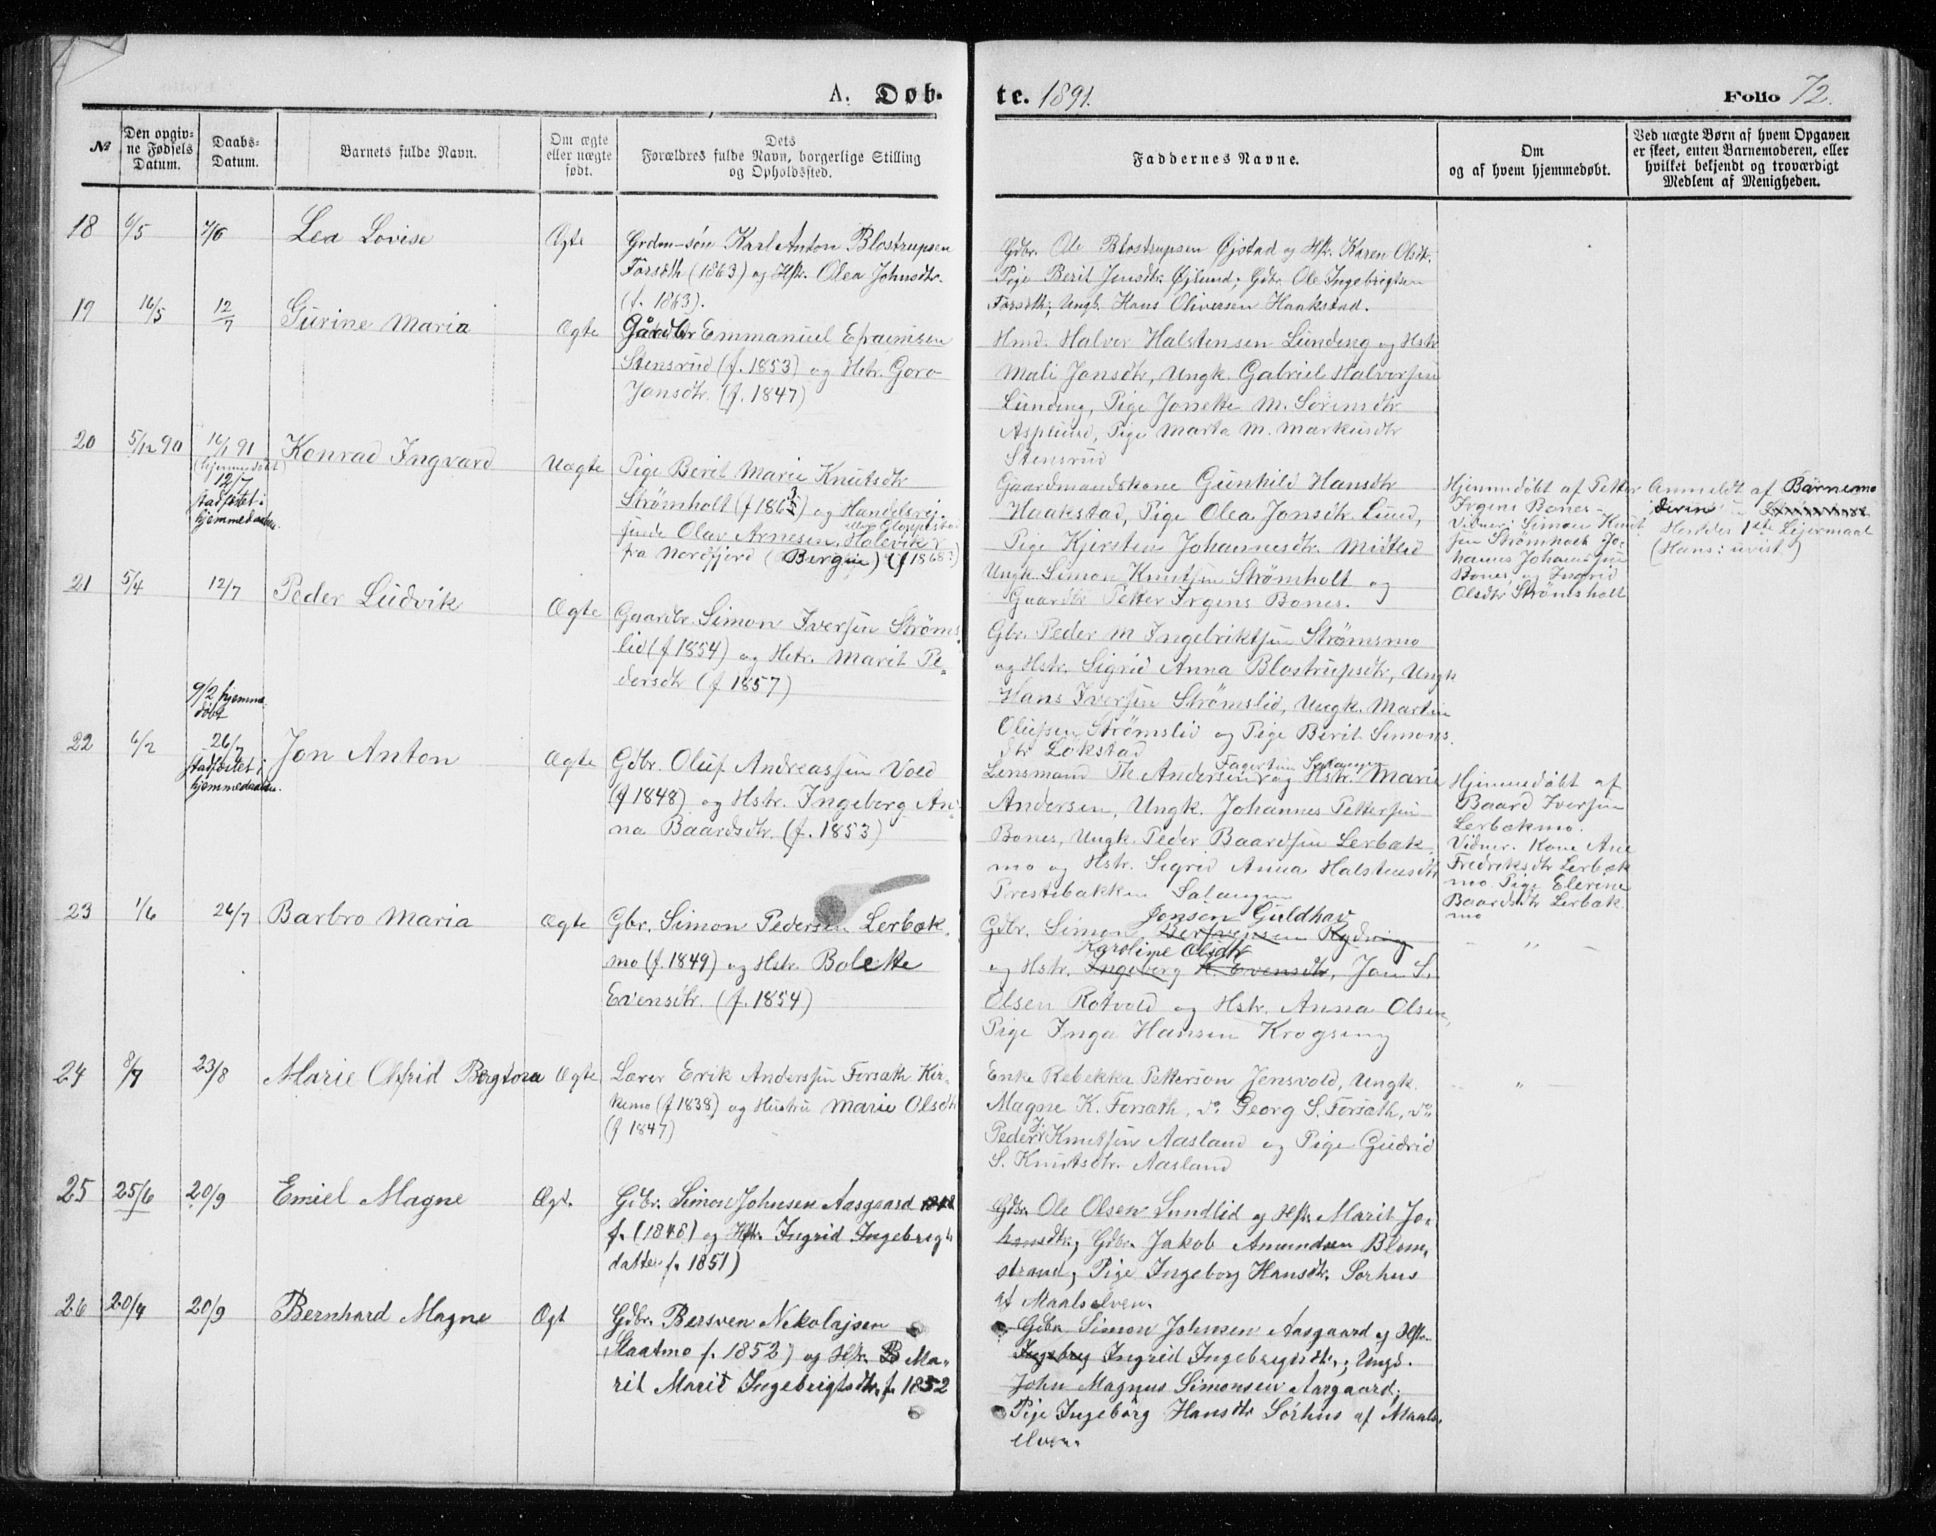 A. Døb- te. 1891. Folio 72.
№
Den opgiv-
ne Fødsels
Datum.
Daabs-
Datum.
Barnets fulde Navn.
Om ægte
eller uægte
født.
Dets
Forældres fulde Navn, borgerlige Stilling
og Opholdssted.
Faddernes Navne.
Om
og af hvem hjemmedøbt.
Ved uægte Børn af hvem Opgaven
er skeet, enten Barnemoderen, eller
hvilket bekjendt og troværdigt
Medlem af Menigheden.
18 6/5 7/6 Lea Lovise Ægte
Grdm-søn Karl Anton Blostrupsen
Forseth (1863) og Hst. Olea Johnsdtr.
(f. 1863).
Gdbr. Ole Blostrupsen Øjstad og Hst. Karen Olsdtr.
Pige Berit Jonsdtr. Øjlund; Gdbr. Ole Ingebrigtsen
Forseth; Ungk. Hans Oliversen Haakstad.
19 16/5 12/7 Gurine Maria Ægte
Gårdbr Emmanuel Efraimsen
Stensrud (f. 1853) og Hstr. Goro
Jonsdtr. (f. 1847)
Hmd. Halvor Halstensen Lunding og Hstr
Mali Jonsdtr, Ungk. Gabriel Halvorsen
Lunding, Pige Jonette M. Sörensdtr
Asplund, Pige Marta M. Markusdtr
Stensrud
20 5/12 90 16/1 91
(hjemmedøbt)
12/7
stadfæstet i
hjemmedaaben.
Konrad Ingvard Uægte
Pige Berit Marie Knutsdtr
Strømholt (f 1863) og Handelsrej-
sende Olav Arnesen Holevik
fra Nordfjord (Bergen) (f 1868?)
Gaardmandskone Gunhild Hansdtr
Haakstad, Pige Olea Jonsdtr. Lund,
Pige Kjersten Johannesdtr. Midtlid
Ungk. Simon Knutsen Strømholt og
Gaardbr Petter Irgens Bones.
Hjemmedøbt af Petter
Irgens Bones-
Vidner: Simon Knut
sen Strømholt Jo-
hannes Johansen
Bones og Ingrid
Olsdtr Strømsholt
Anmeldt af Barnemo
deren
Hendes 1ste Lejermaal
(Hans: uvist)
21 5/4 12/7 Peder Ludvik Ægte
Gaardbr. Simon Iversen Strøms-
lid (f 1854) og Hstr. Marit Pe-
dersdtr (f 1857)
Gbr. Peder M Ingebriktsen Strømsmo
og Hstr. Sigrid Anna Blostrupsdtr, Ungk
Hans Iversen Strømslid, Ungk. Martin
Olufsen Strømslid og Pige Berit Simons-
dtr Lökstad
9/2 hjemme
døbt
22 6/2 26/7
stadfæstet i
hjemmedaaben.
Jon Anton Ægte
Gdbr. Oluf Andreassen Vold
(f 1848) og Hstr. Ingeborg An-
na Baardsdtr. (f. 1853)
Fagertun Salangen
Lensmand Th. Andersen og Hstr. Marie
Andersen, Ungk. Johannes Pettersen
Bones, Ungk. Peder Baardsen Lerbæk-
mo og Hstr. Sigrid Anna Halstensdtr
Prestebakken Salangen
Hjemmedøbt af
Baard Iversen
Lerbækmo.
Vidner. Kone Ane
Fredriksdtr Lerbæk
mo. Pige Elerine
Baardsdtr Lerbæk
mo
23 1/6 26/7 Barbro Maria Ægte
Gbr. Simon Pedersen Lerbæk-
mo (f. 1849) og Hstr. Bolette
Evensdtr. (f. 1854)
Jonsen Guldhav
Gdbr. Simon Bersvejsen Rydning
Karoline Olsdtr
og Hstr. Ingeborg K. Evensdtr, Jon S.
Olsen Rotvold og Hstr. Anna Olsen,
Pige Inga Hansen Krogseng
- " -
24 8/7 23/8 Marie Asfrid Bergtora Ægte
Lærer Erik Anderssen Forsæth Kir-
kemo (f 1838) og Hustru Marie Olsdtr
(f 1847)
Enke Rebekka Petterson Jensvold, Ungk.
Magne K. Forsæth, do. Georg S. Forsæth, do.
Peder J. Knutsen Aasland og Pige Gudrid
S. Knutsdtr. Aasland
- " -
25 25/6 20/9 Emiel Magne Ægt.
Gdbr. Simon Johnsen Aasgaard
f. (1848) og Hstr. Ingrid Ingebrigts
datter f. 1851)
Gdbr. Ole Olsen Lundlid og Hst. Marit Jo-
hansdtr; Gdbr. Jakob Amundsen Blom-
strand; Pige Ingeborg Hansdtr. Sørhus
af Maalselven.
26 20/4 20/9 Bernhard Magne Ægt
Gdbr. Bersven Nikolajsen
Slaatmo f. 1852) og Hst. B Ma-
rit Marit Ingebrigtsdtr. f. 1852
Gdbr. Simon Johnsen Aasgaard og Hst.
Ingeborg Ingrid Ingebrigtsdtr.; Ungk.
John Magnus Simonsen Aasgaard;
Pige Ingeborg Hansdtr Sørhus af Maals-
elven.